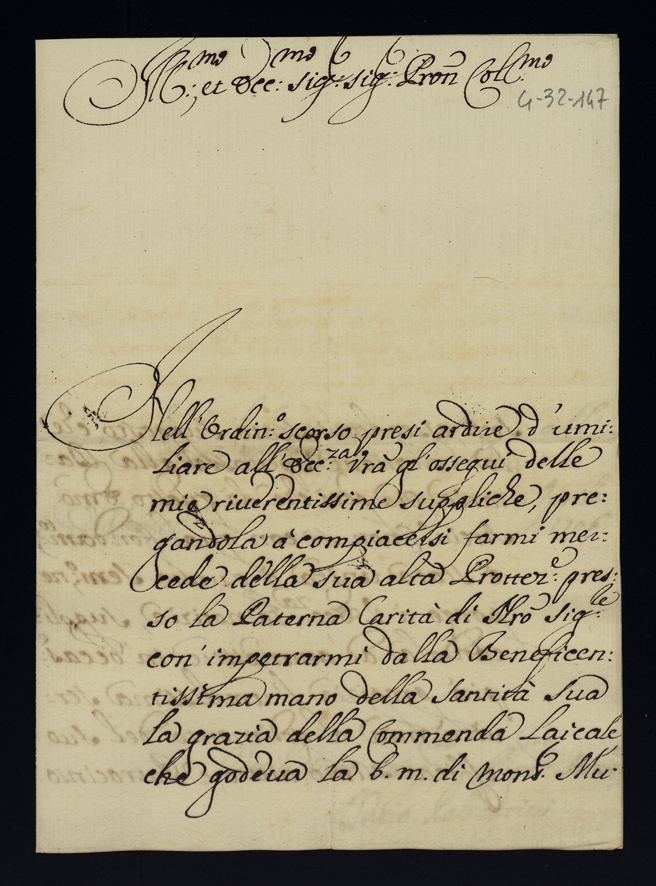 Ill:mo et Ecc:mo Sig:r Sig:r Pron Coll:mo
G-32-147
Nell'Ordin:o scorso presi ardire d'umi:
liare all'Ecc:za Vrã gl'ossequi delle
mie riverentissime suppliche, pre:
gandola à compiacersi farmi mer:
cede della sua alta Prottez:e pres:
so la Paterna Carità di Nrõ Sig:re
con' impetrarmi dalla Beneficen:
tissima mano della Santità Sua
la grazia della Commenda Laicale
che godeva la b. m. di Mons:r Mu: